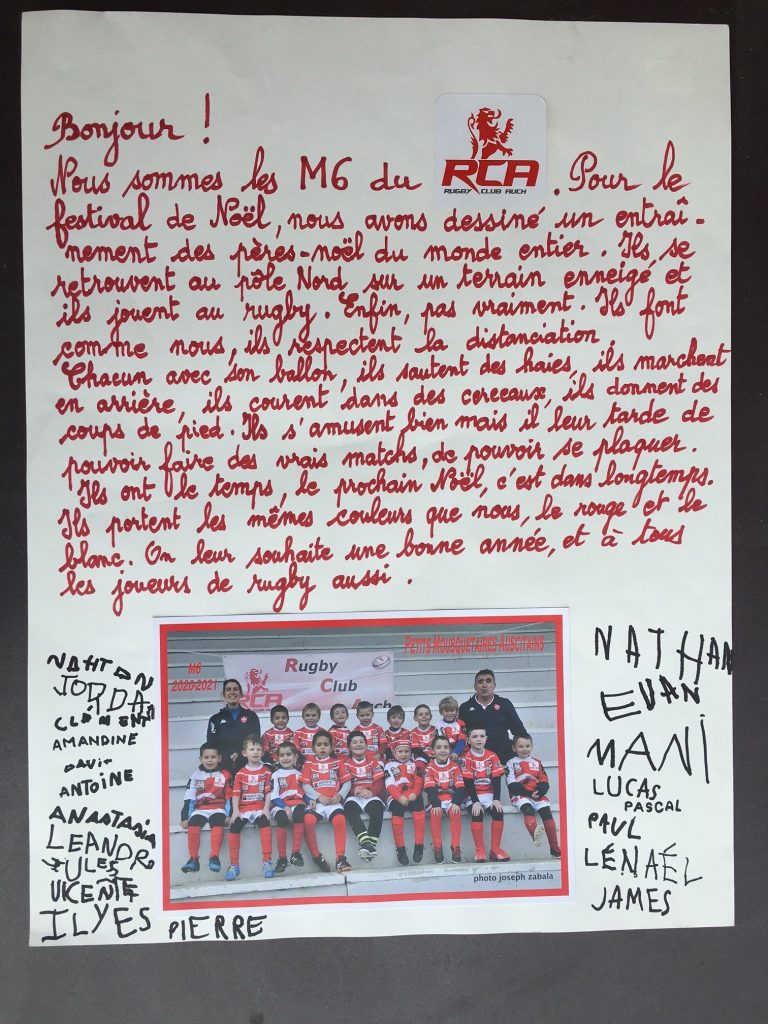 Bonjour !
Nous sommes les M6 du RCA RUGBY CLUB AUCH . Pour le
festival de Noël, nous avons dessiné un entraî-
nement des pères-noël du monde entier. Ils se
retrouvent au pôle Nord sur un terrain enneigé et
ils jouent au rugby. Enfin, pas vraiment. Ils font
comme nous, ils respectent la distanciation.
Chacun avec son ballon, ils sautent des haies, ils marchent
en arrière, ils courent dans des cerceaux, ils donnent des
coups de pied. Ils s'amusent bien mais il leur tarde de
pouvoir faire des vrais matchs, de pouvoir se plaquer.
Ils ont le temps, le prochain Noël, c'est dans longtemps.
Ils portent les mêmes couleurs que nous, le rouge et le
blanc. On leur souhaite une bonne année, et à tous
les joueurs de rugby aussi.
NAHTAN
JORDAN
CLÉMENT
AMANDINE
DAVID
ANTOINE
ANASTASIA
LEANDRO
JULES
VICENTE
ILYES
PIERRE
M6
2020-2021
PETITS MOUSQUETAIRES AUSCITAINS
RCA
Rugby
Club
Auch
photo joseph zabala
NATHAN
EVAN
MANI
LUCAS
PASCAL
PAUL
LÉNAËL
JAMES